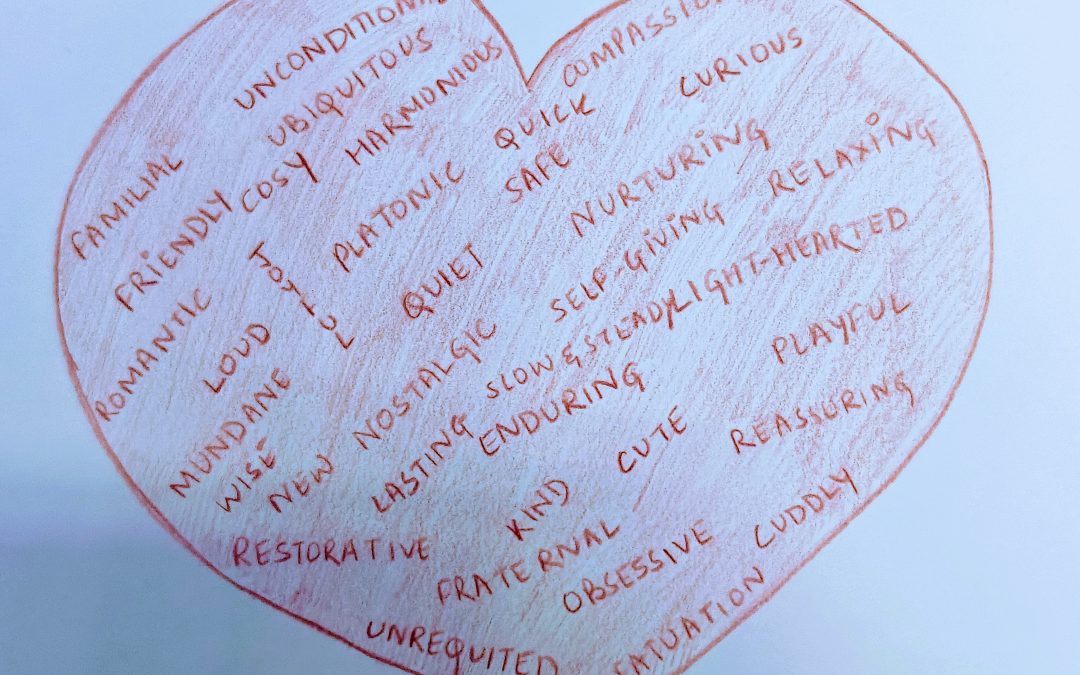 UNCONDITIONA
UBIQUITOUS
HARMONIOUS
COSY
FAMILIAL
FRIENDLY
ROMANTIC
JOYFUL
LOUD
MUNDANE
WISE
NEW
COMPASSIO
QUICK
CURIOUS
PLATONIC
SAFE
NURTURING
RELAXING
QUIET
SELF-GIVING
LIGHT-HEARTED
NOSTALGIC
SLOW & STEADY
PLAYFUL
LASTING
ENDURING
CUTE
REASSURING
KIND
RESTORATIVE
FRATERNAL
OBSESSIVE
CUDDLY
UNREQUITED
FATUATION